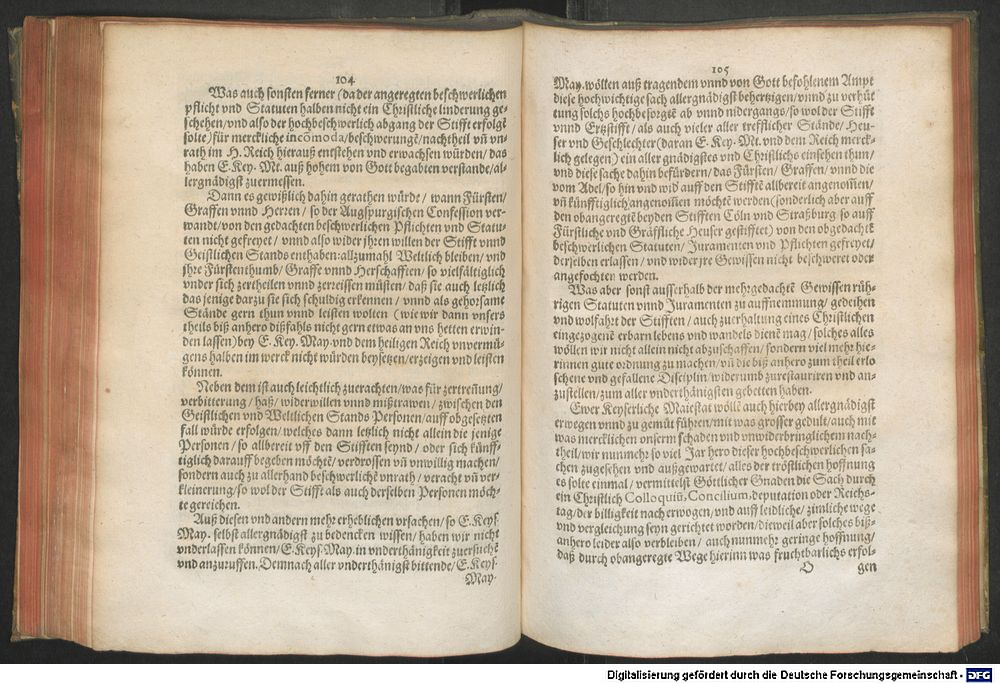 104
Was auch sonsten ferner (da der angeregten beschwerlichen
pflicht vnd Statuten halben nicht ein Christliche linderung ge-
schehen/vnd also der hochbeschwerlich abgang der Stifft erfolgẽ
solte/) für merckliche incõmoda/beschwerungẽ/nachtheil vñ vn-
rath im H. Reich hierauß entstehen vnd erwachsen würden/das
haben E. Key. Mt. auß hohem von Gott begabten verstande/al-
lergnädigst zuermessen.
Dann es gewißlich dahin gerathen würde/ wann Fürsten/
Graffen vnnd Herren/ so der Augspurgischen Confession ver-
wandt/von den gedachten beschwerlichen Pflichten vnd Statu-
ten nicht gefreyet/ vnnd also wider jhren willen der Stifft vnnd
Geistlichen Stands enthaben:allzumahl Weltlich bleiben/vnd
jhre Fürstenthumb/Graffe vnnd Herschafften/so vielfältiglich
vnder sich zertheilen vnnd zerreissen müsten/ daß sie auch letzlich
das jenige darzu sie sich schuldig erkennen/ vnnd als gehorsame
Stände gern thun vnnd leisten wolten (wie wir dann vnsers
theils biß anhero dißfahls nicht gern etwas an vns hetten erwin-
den lassen) bey E. Key. May. vnd dem heiligen Reich vnvermü-
gens halben im werck nicht würden beysetzen/erzeigen vnd leisten
können.
Neben dem ist auch leichtlich zuerachten/was für zertreñung/
verbitterung/ haß/ widerwillen vnnd mißtrawen/ zwischen den
Geistlichen vnd Weltlichen Stands Personen/auff obgesetzten
fall würde erfolgen/welches dann letzlich nicht allein die jenige
Personen/ so allbereit vff den Stifften seynd/ oder sich künff-
tiglich darauff begeben möchtẽ/ verdrossen vñ vnwillig machen/
sondern auch zu allerhand beschwerlichẽ vnrath/ veracht vñ ver-
kleinerung/so wol der Stifft als auch derselben Personen möch-
te gereichen.
Auß diesen vnd andern mehr erheblichen vrsachen/so E. Keys.
May. selbst allergnädigst zu bedencken wissen/ haben wir nicht
vnderlassen können/E. Keys. May. in vnderthänigkeit zuersuchẽ
vnd anzuruffen. Demnach aller vnderthänigst bittende/E. Keys.
May.
105
May. wöllen auß tragendem vnnd von Gott befohlenem Ampt
diese hochwichtige sach allergnädigst behertzigen/vnnd zu verhüt
tung solchs hochbesorgtẽ ab vnnd nidergangs/so wol der Stifft
vnnd Ertzstifft/ als auch vieler aller trefflicher Stände/ Heu-
ser vnd Geschlechter (daran E. Key. Mt. vnd dem Reich merck-
lich gelegen) ein aller gnädigstes vnd Christlichs einsehen thun/
vnnd die sache dahin befürdern/das Fürsten/ Graffen/ vnnd die
vom Adel/so hin vnd wid auff den Stifftẽ allbereit angenom̃en/
vñ künfftiglich angenom̃en möchtẽ werden (sonderlich aber auff
den obangeregtẽ beyden Stifften Cöln vnd Straßburg so auff
Fürstliche vnd Gräffliche Heuser gestifftet) von den obgedachtẽ
beschwerlichen Statuten/ Juramenten vnd Pflichten gefreyet/
derselben erlassen/ vnd wider jre Gewissen nicht beschweret oder
angefochten werden.
Was aber sonst ausserhalb der mehrgedachtẽ Gewissen rüh-
rigen Statuten vnnd Juramenten zu auffnemmung/ gedeihen
vnd wolfahrt der Stifften/ auch zuerhaltung eines Christlichen
eingezogenẽ erbarn lebens vnd wandels dienẽ mag/ solches alles
wöllen wir nicht allein nicht abzuschaffen/sondern viel mehr hie-
rinnen gute ordnung zu machen/vñ die biß anhero zum theil erlo
schene vnd gefallene Disciplin/ widerumb zurestauriren vnd an-
zustellen/zum aller vnderthänigsten gebetten haben.
Ewer Keyserliche Maiestat wöllẽ auch hierbey allergnädigst
erwegen vnnd zu gemüt führen/mit was grosser gedult/auch mit
was mercklichen vnserm schaden vnd vnwiderbringlichem nach-
theil/wir nunmehr so viel Jar hero dieser hochbeschwerlichen sa-
chen zugesehen vnd außgewartet/alles der tröstlichen hoffnung
es solte einmal/ vermittelst Göttlicher Gnaden die Sach durch
ein Christlich Colloquiũ, Concilium, deputation oder Reichs-
tag/der billigkeit nach erwogen/vnd auff leidliche/zimliche wege
vnd vergleichung seyn gerichtet worden/dieweil aber solches biß-
anhero leider also verbleiben/ auch nunmehr geringe hoffnung/
daß durch obangeregte Wege hierinn was fruchtbarlichs erfol-
O gen
Digitalisierung gefördert durch die Deutsche Forschungsgemeinschaft - DFG